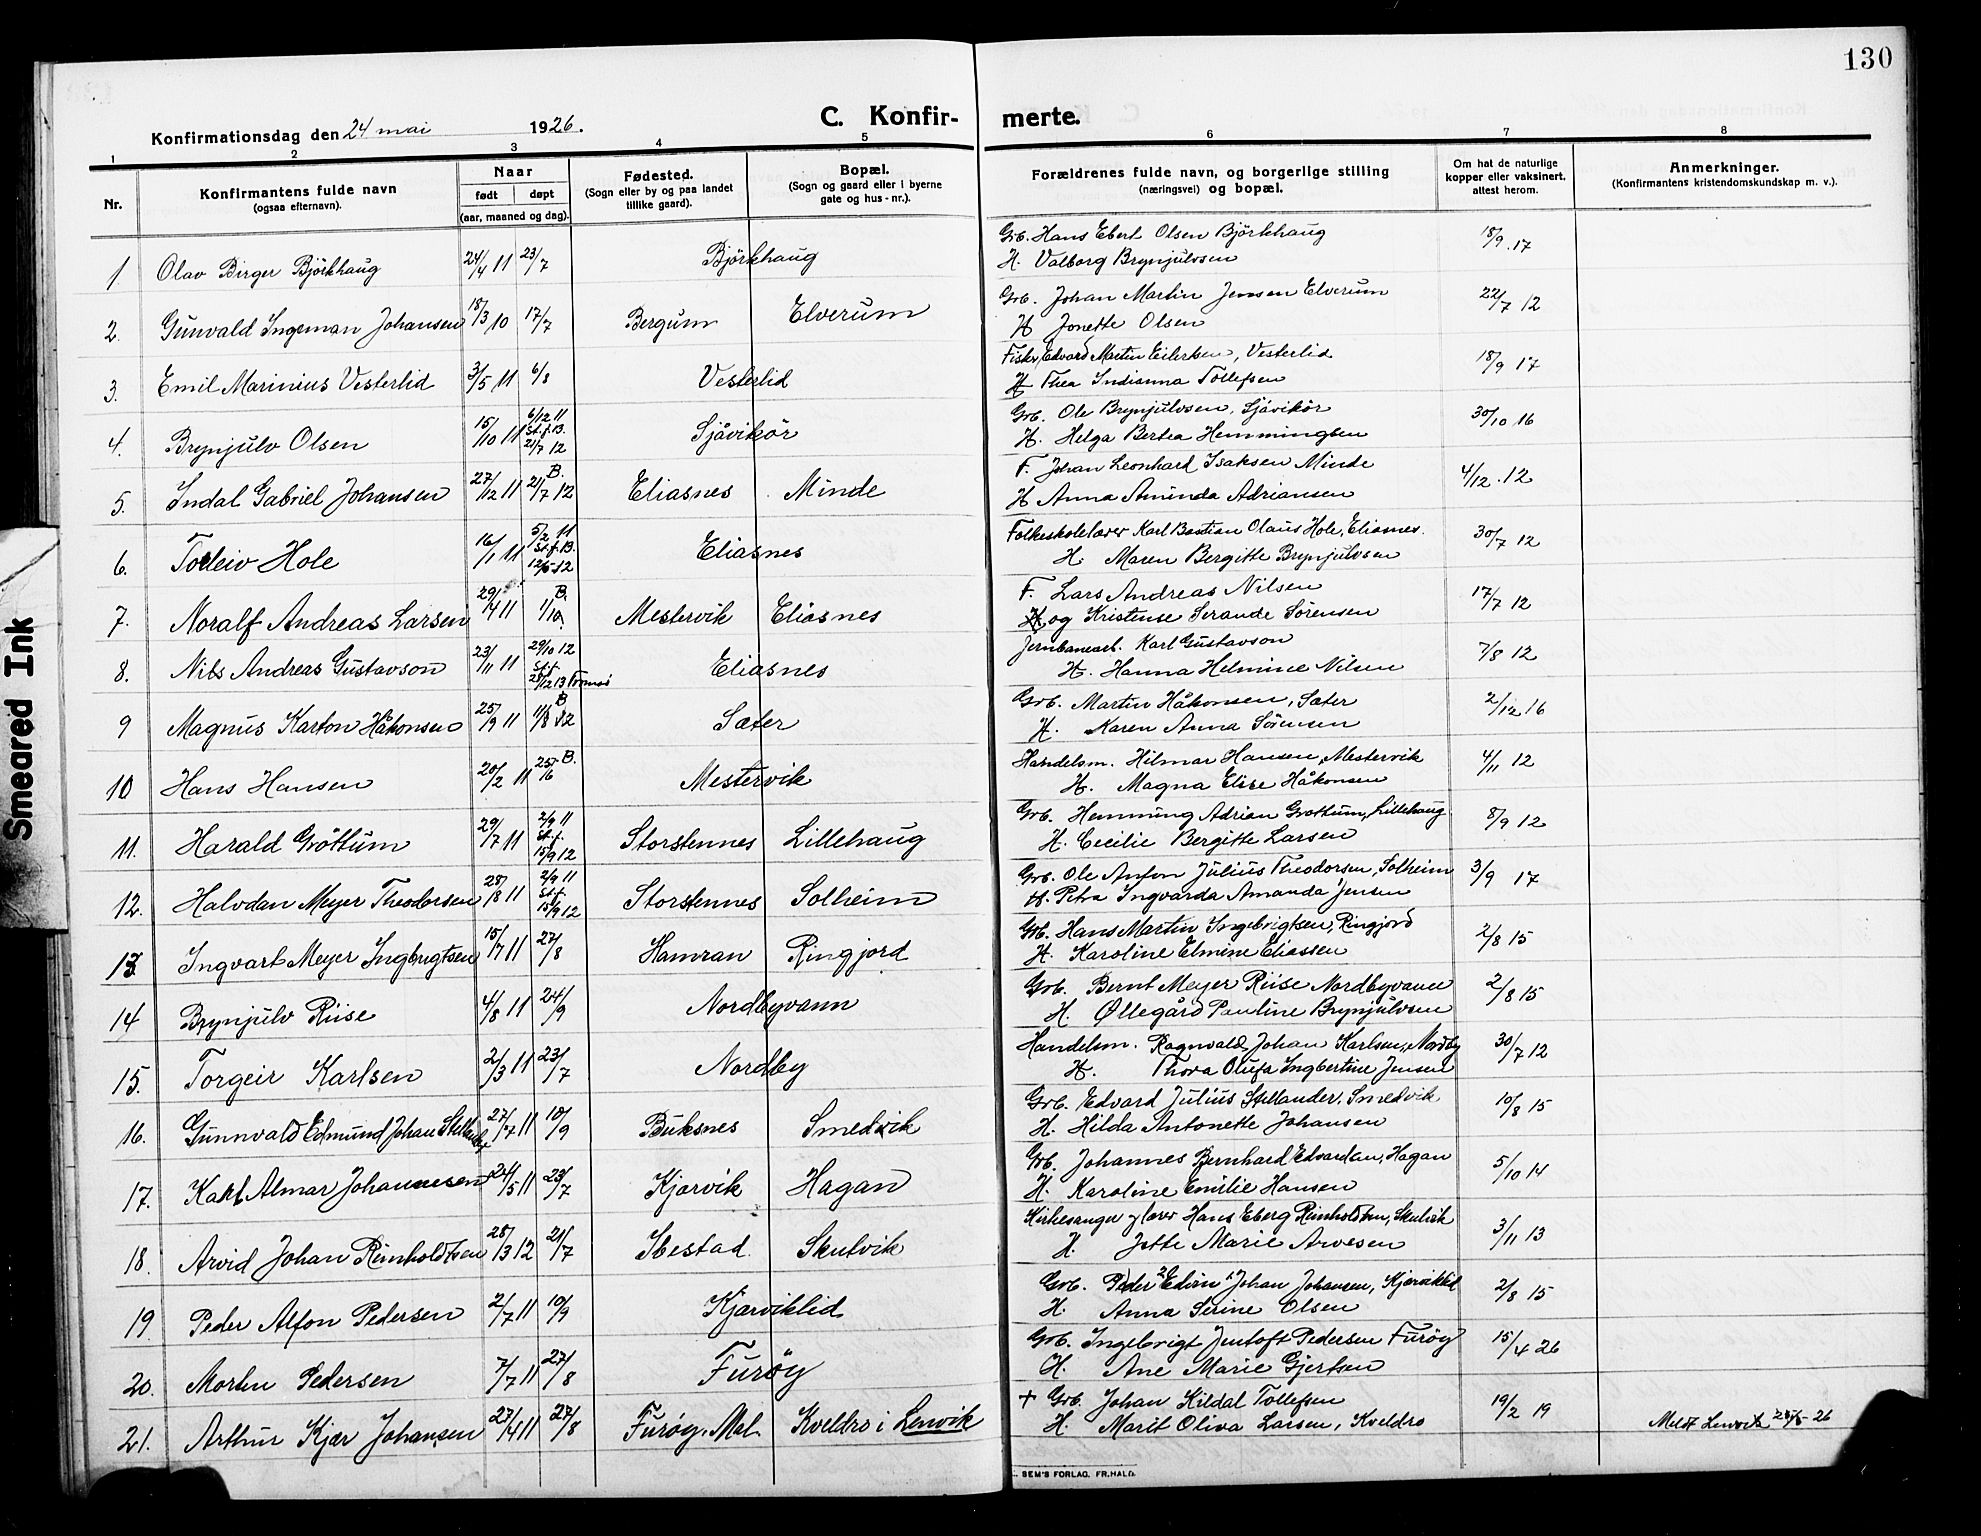 130
Konfirmationsdag den 24 mai 1926.
C. Konfirmerte.
1 2 3 4 5 6 7 8
Nr.
Konfirmantens fulde navn
(ogsaa efternavn).
Naar
født døpt
(aar, maaned og dag).
Fødested.
(Sogn eller by og paa landet
tillike gaard).
Bopæl.
(Sogn og gaard eller i byerne
gate og hus-nr.).
Forældrenes fulde navn, og borgerlige stilling
(næringsvei) og bopæl.
Om hat de naturlige
kopper eller vaksinert,
attest herom.
Anmerkninger.
(Konfirmantens kristendomskundskap m. v.).
1 Olav Birger Björkhaug 24/4 11 23/7 Björkhaug Grb. Hans Ebert Olsen Björkhaug 18/9 17
H. Valborg Brynjulvsen
2. Gunvald Ingeman Johansen 18/3 10 17/7 Bergum Elverum Grb. Johan Martin Jensen Elverum 22/7 12
H Jonette Olsen
3. Emil Marinius Vesterlid 3/5 11 6/8 Vesterlid Fisker Edvard Martin Eilertsen, Vesterlid 18/9 17
H Thea Indianna Tollefsen
4. Brynjulv Olsen 15/10 11 6/12 11 St.f. B. 21/7 12 Sjåvikör Grb. Ole Brynjulvsen, Sjåvikör 30/10 16
H. Helga Bertea Hemmingsen
5. Indal Gabriel Johansen 27/12 11 B. 21/7 12 Eliasnes Minde F. Johan Leonhard Isaksen Minde 4/12 12
H Anna Aminda Adriansen
6. Torleiv Hole 16/1 11 5/2 11 St.f. B. 12/5 12 Eliasnes Folkeskolelærer Karl Bastian Olaus Hole, Eliasnes. 30/7 12
H. Maren Bergitte Brynjulvsen
7. Noralf Andreas Larsen 29/4 11 B. 1/10 Mestervik Eliasnes F. Lars Andreas Nilsen 17/7 12
H og Kristense Serande Sörensen
8. Nils Andreas Gustavson 23/11 11 29/10 12 St.f. 28/12 13 Tromsö Eliasnes Jernbanearb. Karl Gustavson 7/8 12
H. Hanna Helmine Nilsen
9 Magnus Karton Håkonsen 25/9 11 B 11/8 12 Sæter Grb. Martin Håkonsen, Sæter 2/12 16
H. Karen Anna Sörensen
10 Hans Hansen 20/2 11 B. 25/6 Mestervik Handelsm. Hilmar Hansen, Mestervik 4/11 12
H. Magna Elise Håkonsen
11. Harald Gröttum 29/7 11 2/9 11 St.f. 15/9 12 Storstennes Lillehaug Grb. Hemming Adrian Grøttum, Lillehaug 8/9 12
H. Cecilie Bergitte Larsen
12. Halvdan Meyer Theodorsen 28/8 11 2/9 11 St.f. 15/9 12 Storstennes Solheim Grb. Ole Anton Julius Theodorsen, Solheim 3/9 17
H. Petra Ingvarda Amanda Jensen
13. Ingvart Meyer Ingbrigtsen 15/7 11 27/8 Hamran Ringjord Grb. Hans Martin Ingebrigtsen, Ringjord 2/8 15
H. Karoline Elmine Eliassen
14 Brynjulv Riise 4/8 11 24/9 Nordbyvann Grb. Bernt Meyer Riise Nordbyvann 2/8 15
H. Øllegård Pauline Brynjulvsen
15. Torgeir Karlsen 2/3 11 23/7 Nordby Handelsm. Ragnvald Johan Karlsen, Nordby 30/7 12
H. Thora Olufa Ingbertine Jensen
16. Gunnvald Edmund Johan Stellander 27/7 11 10/9 Buksnes Smedvik Grb. Edvard Julius Stellander, Smedvik 10/8 15
H. Hilda Antonette Johansen
17. Karl Almar Johannesen 24/5 11 23/7 Kjærvik Hagan Grb. Johannes Bernhard Edvardsen, Hagan 5/10 14
H. Karoline Emilie Hansen
18. Arvid Johan Reinholdtsen 28/3 12 21/7 Ibestad Skutvik Kirkesanger og lærer Hans Eberg Reinholdtsen, Skutvik 3/11 13
H. Jette Marie Arvesen
19 Peder Alfon Pedersen 2/7 11 10/9 Kjærviklid Grb. Peder 2 Edvin 1 Johan Johansen, Kjærviklid 2/8 15
H. Anna Serine Olsen
20. Morten Pedersen 7/7 11 27/8 Furøy Grb. Ingebrigt Jentoft Pedersen Furøy 15/4 26
H. Ane Marie Gjertsen
21. Arthur Kjær Johansen 27/4 11 27/8 Furøy, Mal. Kveldro i Lenvik + Grb. Johan Kildal Tollefsen 19/2 19 Meldt Lenvik 28/5-26
H. Marit Oliva Larsen, Kveldro
SEM'S FORLAG, FR.HALD.
Smeared Ink